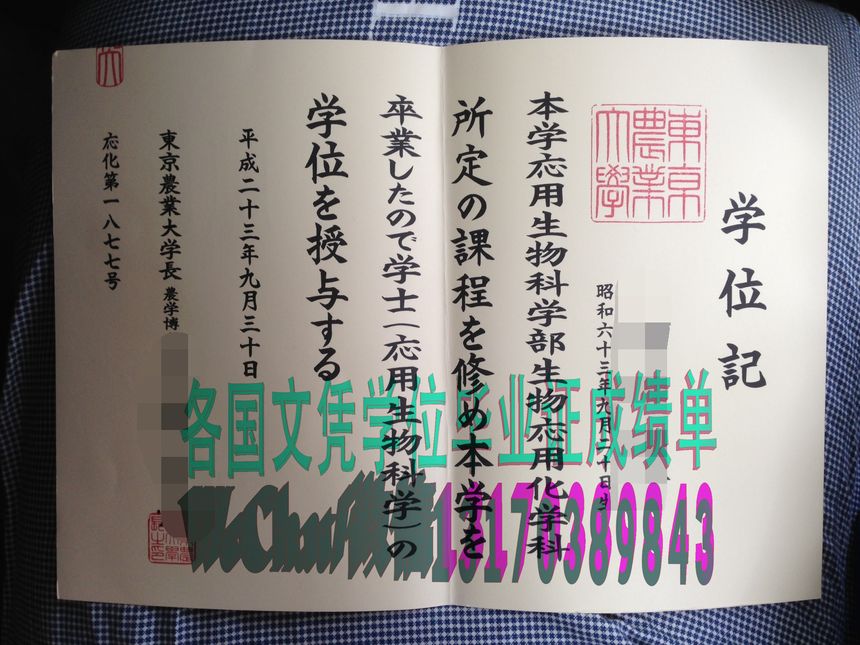 学位記
東京
農業
大學
昭和六十三年九月二十日生
本学応用生物科学部生物応用化学科
所定の課程を修め本学を
卒業したので学士(応用生物科学)の
学位を授与する
平成二十三年九月三十日
東京農業大学長 農学博
応化第一八七七号
各国文凭学位毕业证成绩单
WeChat/微信13170389843